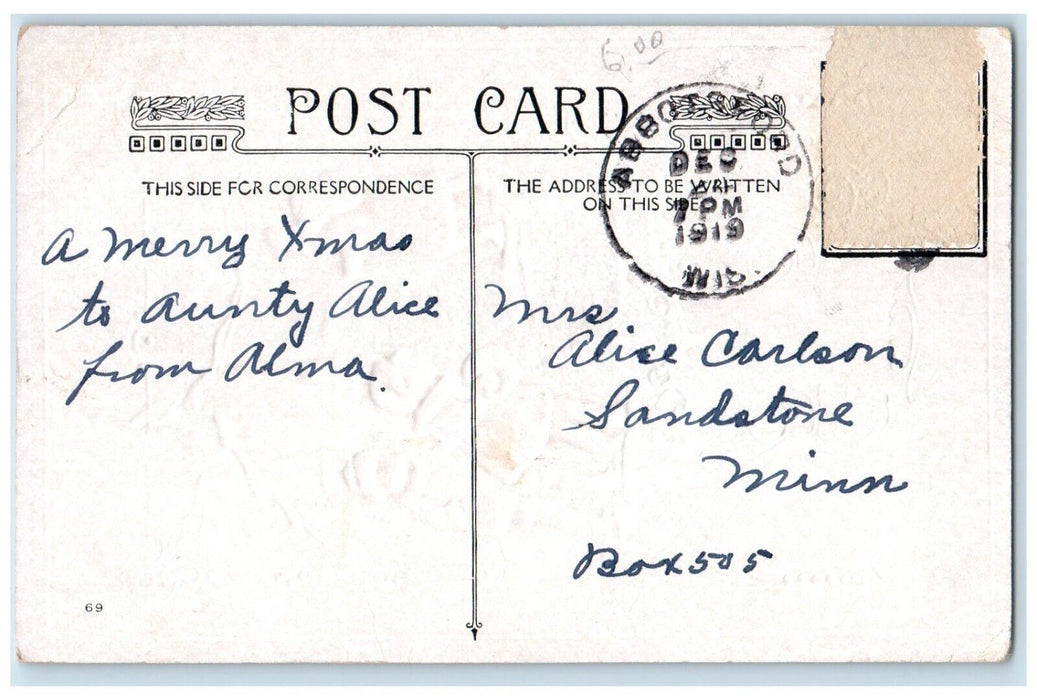 6.00
POST CARD
THIS SIDE FOR CORRESPONDENCE
THE ADDRESS TO BE WRITTEN
ON THIS SIDE
ABBOTSFORD
DEC
7 PM
1919
WIS.
A Merry Xmas
to Aunty Alice
from Alma.
Mrs
Alice Carlson
Sandstone
Minn
Box 505
69